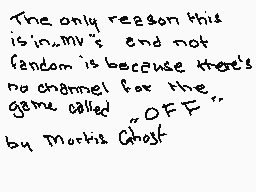 The only reason this
is in „MV"s and not
fandom is because there's
no channel for the
game called „OFF"
by Mortis Ghost